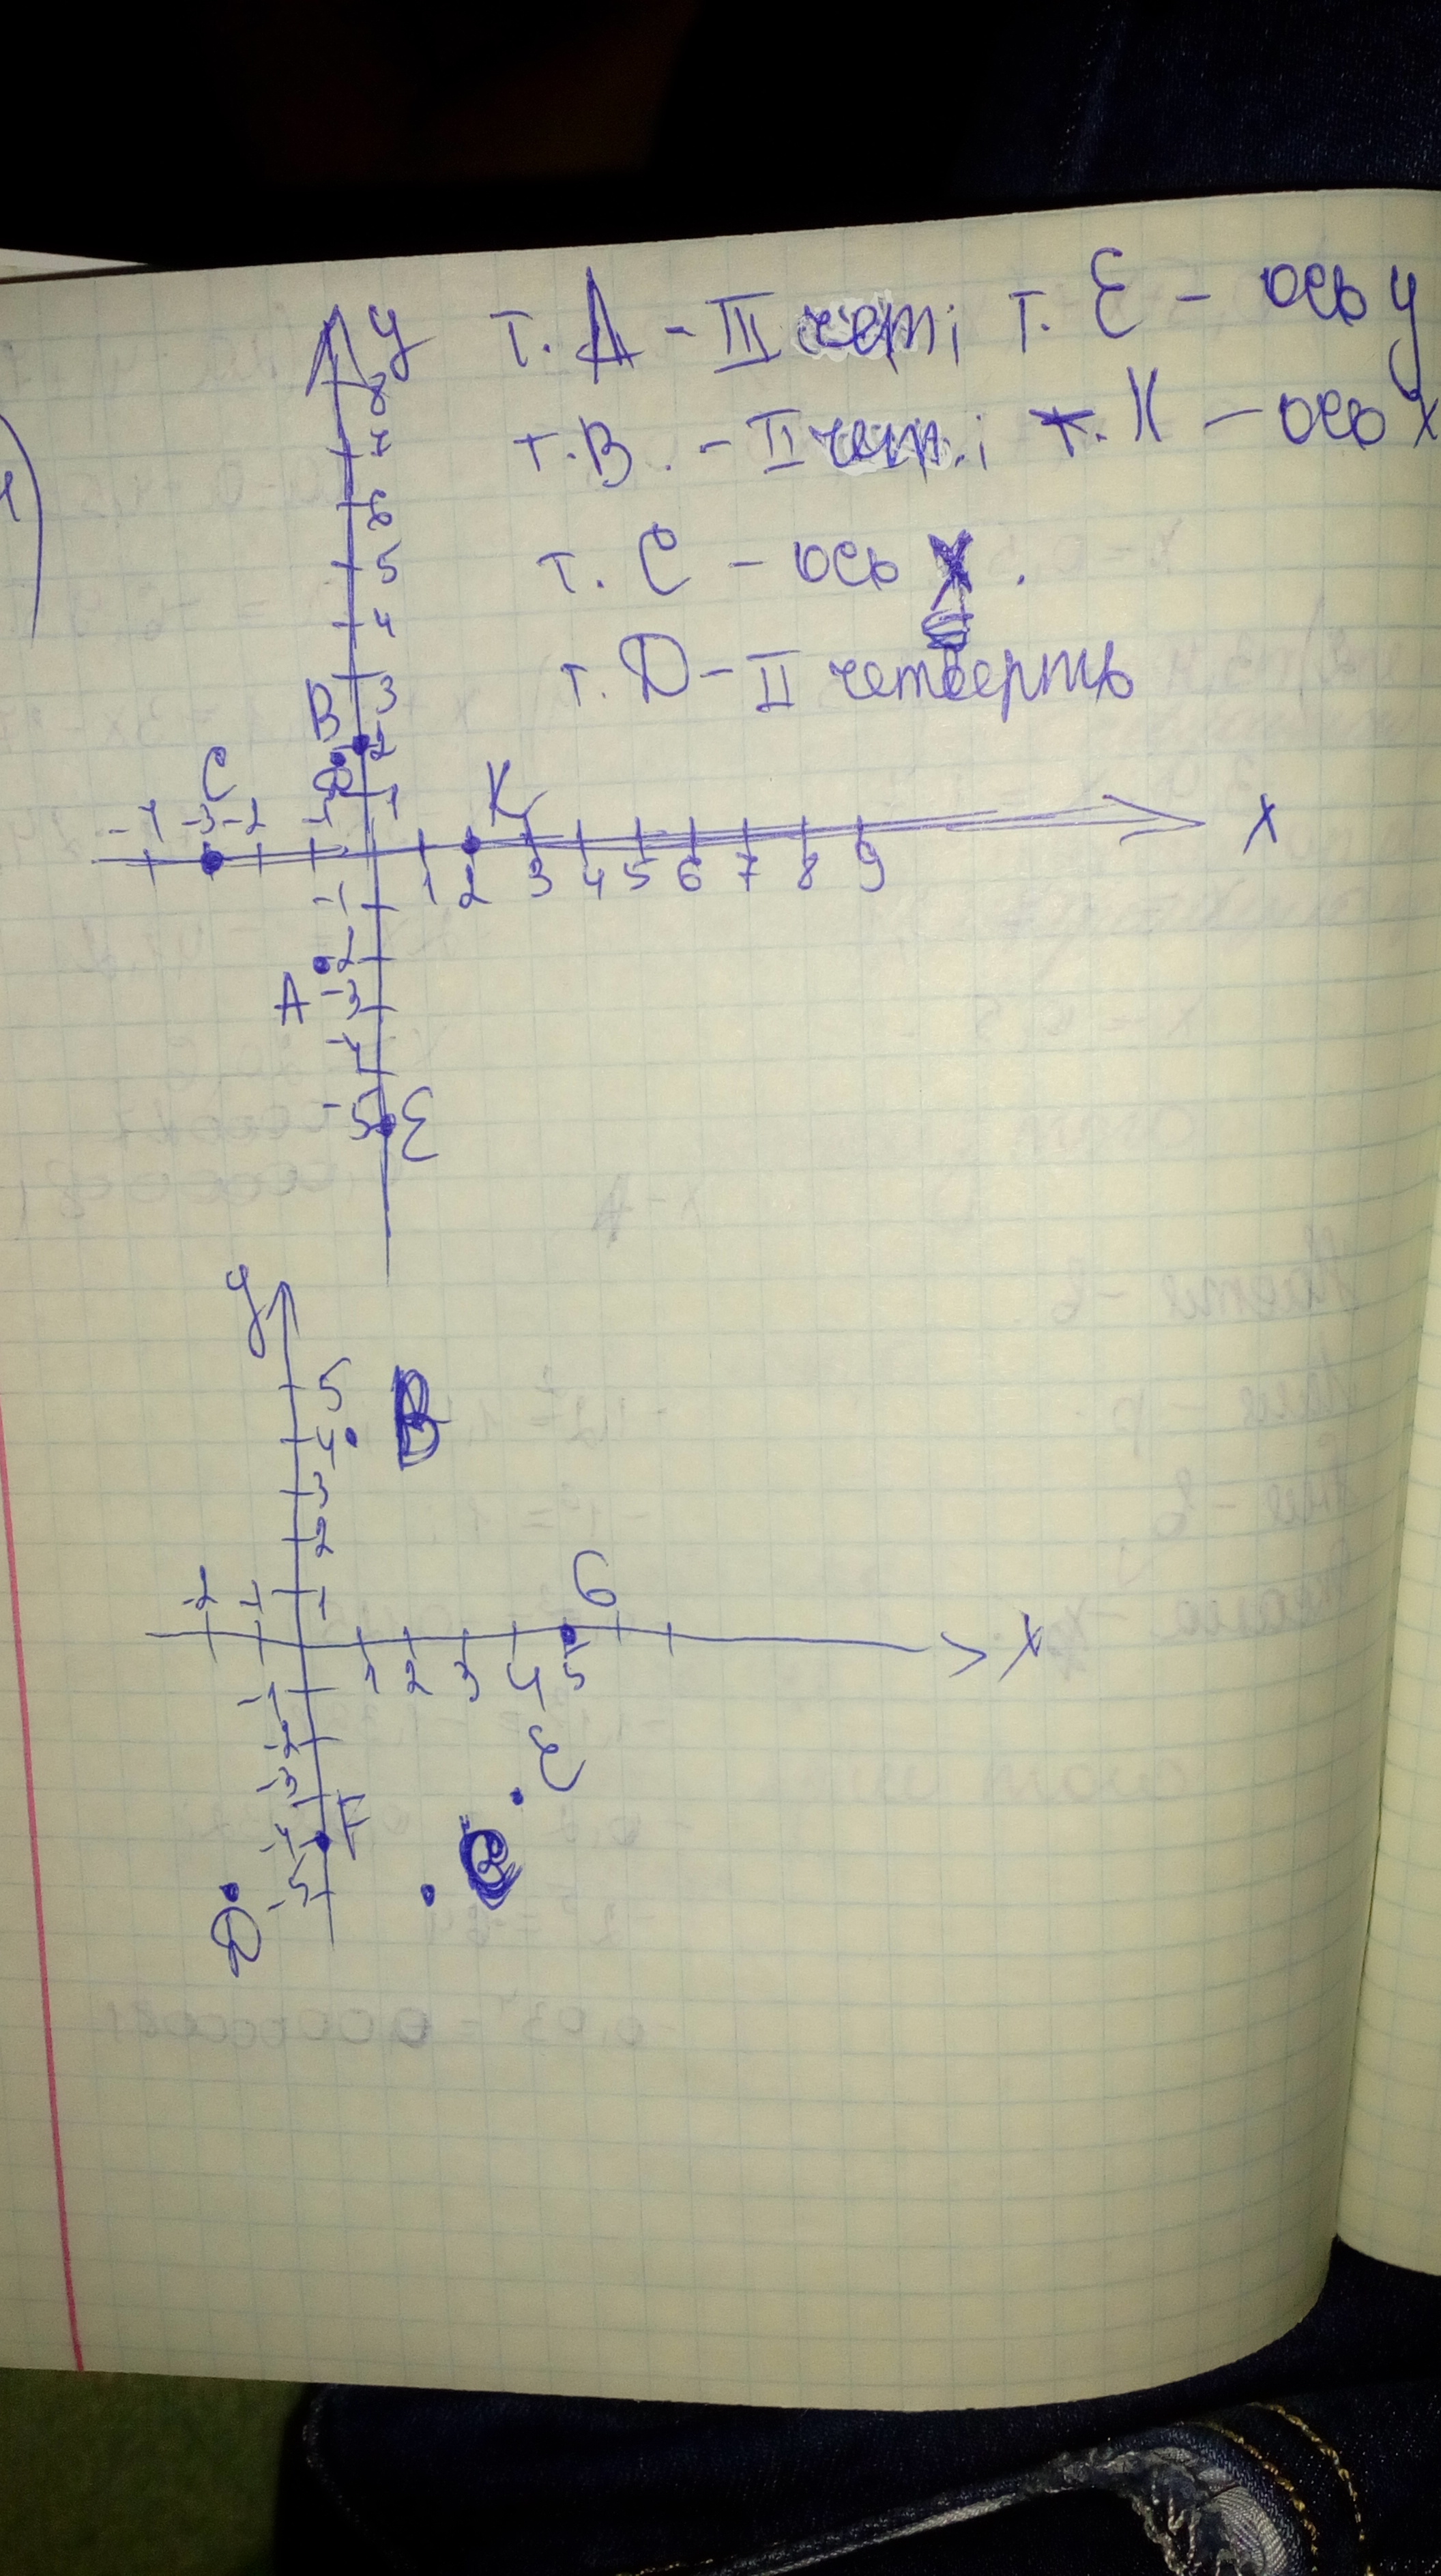 1)
y т. А - III чет; т. Е - ось у
8
7 т.В. - II чет.; т. К - ось х
6
5 т. С - ось X.
4
3 т. Д - II четверть
B
2
C Д 1 K
-4 -3 -2 -1 x
1 2 3 4 5 6 7 8 9
-1
-2
A -3
-4
-5 E
y
5 B
4
3
2
-2 -1 1 G
x
1 2 3 4 5
-1
-2 E
-3
-4 F C
-5
D